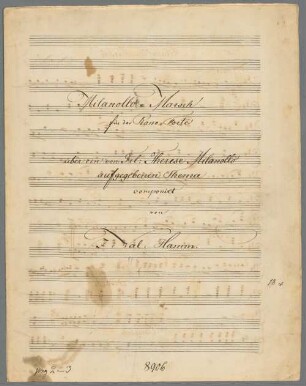 Milanollo = Marsch
für das Piano=Forte
über ein von Frl. Therese Milanollo
aufgegebenen Thema
componirt
von
J. Val. Hamm
8906